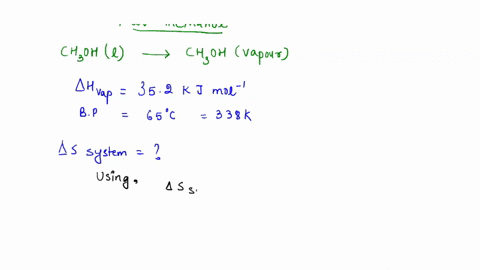 CH₃OH (l) → CH₃OH (vapour)
ΔHvap = 35.2 KJ mol⁻¹
B.P = 65°C = 338K
ΔS system = ?
Using, ΔSs.